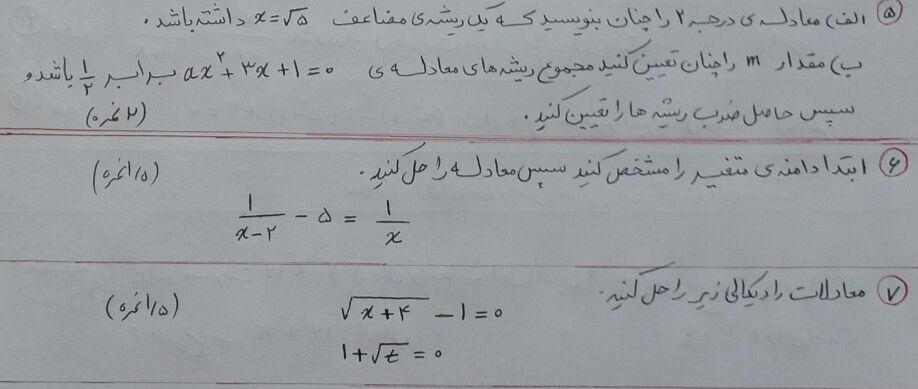 ۵ الف) معادله‌ی درجه ۲ را چنان بنویسید که یک ریشه‌ی مضاعف x=√۵ داشته باشد.
ب) مقدار m را چنان تعیین کنید مجموع ریشه های معادله ی ax²+۳x+1=0 برابر ۱/۲ باشد و
سپس حاصل ضرب ریشه ها را تعیین کنید. (۲ نمره)
۶ ابتدا دامنه ی متغیر را مشخص کنید سپس معادله را حل کنید. (۱/۵ نمره)
1/(x-۲) - ۵ = 1/x
۷ معادلات رادیکالی زیر را حل کنید. (۱/۵ نمره)
√(x+۴) -1=0
1+√t=0